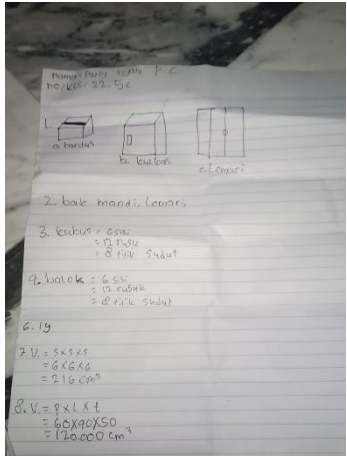 no/kls: 22. 5c
1.
a. kardus
b. kulkas
c. Lemari
2. bak mandi, Lemari
3. kubus = 6 sisi
= 12 rusuk
= 8 titik sudut
4. balok = 6 sisi
= 12 rusuk
= 8 titik sudut
6. 14
7 V. = s x s x s
= 6 x 6 x 6
= 216 cm³
8. V. = P x L x t
= 60x40x50
= 120.000 cm³